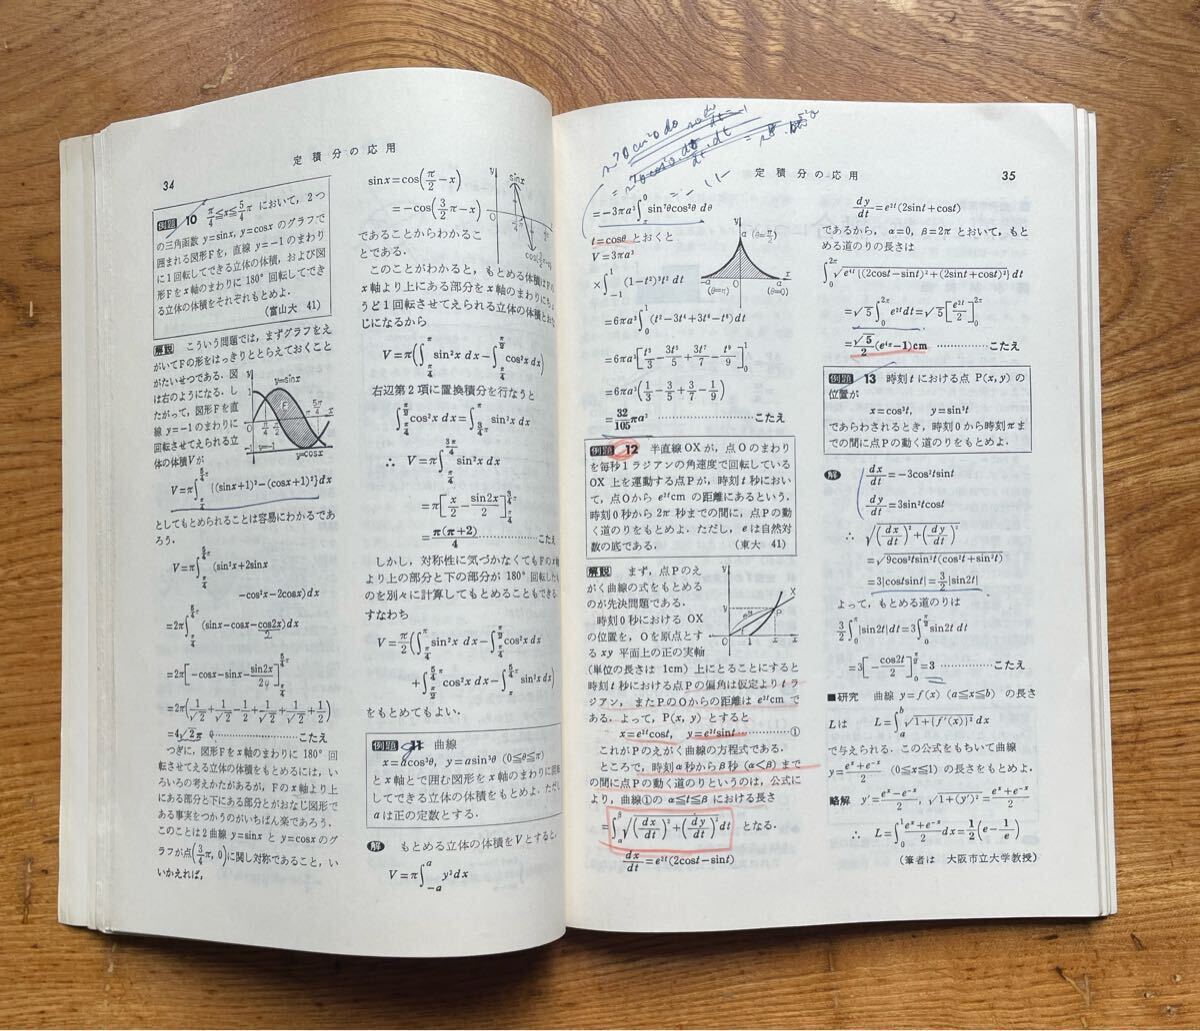 定積分の応用
34
例題 10 π/4≦x≦5/4π において，2つ
の三角函数 y=sinx, y=cosx のグラフで
囲まれる図形Fを，直線 y=−1 のまわり
に1回転してできる立体の体積，および図
形Fをx軸のまわりに 180° 回転してでき
る立体の体積をそれぞれもとめよ．
(富山大 41)
解説 こういう問題では，まずグラフをえ
がいてFの形をはっきりととらえておくこと
がたいせつである．図
は右のようになる．し
たがって，図形Fを直
線 y=−1 のまわりに
回転させてえられる立
体の体積Vが
y=sinx
F
y=−1
y=cosx
V=π∫_{π/4}^{5/4π} {(sinx+1)²−(cosx+1)²}dx
としてもとめられることは容易にわかるであ
ろう．
V=π∫_{π/4}^{5/4π} (sin²x+2sinx
−cos²x−2cosx)dx
=2π∫_{π/4}^{5/4π} (sinx−cosx−cos2x/2)dx
=2π[−cosx−sinx−sin2x/4]_{π/4}^{5/4π}
=2π(1/√2+1/√2−1/4+1/√2+1/√2+1/4)
=4√2π …………こたえ
つぎに，図形Fをx軸のまわりに 180° 回
転させてえる立体の体積をもとめるには，い
ろいろの考えかたがあるが，Fのx軸より上
にある部分と下にある部分とがおなじ図形で
ある事実をつかうのがいちばん楽であろう．
このことは2曲線 y=sinx と y=cosx のグ
ラフが点(3/4π, 0)に関し対称であること，い
いかえれば，
sinx=cos(π/2−x)
=−cos(3/2π−x)
であることからわかるこ
とである．
sinx
このことがわかると，もとめる体積はFの
x軸より上にある部分をx軸のまわりにちょ
うど1回転させてえられる立体の体積とおな
じになるから
V=π(∫_{π/4}^{π} sin²x dx−∫_{π/4}^{π/2} cos²x dx)
右辺第2項に置換積分を行なうと
∫_{π/4}^{π/2} cos²x dx=∫_{3/4π}^{π} sin²x dx
∴ V=π∫_{π/4}^{3/4π} sin²x dx
=π[x/2−sin2x/4]_{π/4}^{3/4π}
=π(π+2)/4 …………こたえ
しかし，対称性に気づかなくてもFのx軸
より上の部分と下の部分が 180° 回転したも
のを別々に計算してもとめることもできる．
すなわち
V=π/2(∫_{π/4}^{π} sin²x dx−∫_{π/4}^{π/2} cos²x dx
+∫_{π/2}^{5/4π} cos²x dx−∫_{π}^{5/4π} sin²x dx)
をもとめてもよい．
例題 11 曲線
x=acos³θ, y=asin³θ (0≦θ≦π)
とx軸とで囲む図形をx軸のまわりに回転
してできる立体の体積をもとめよ．ただし
aは正の定数とする．
解 もとめる立体の体積をVとすると，
V=π∫_{−a}^{a} y²dx
定積分の応用
35
=−3πa³∫_{π}^{0} sin⁷θcos²θ dθ
t=cosθ とおくと
V=3πa³
×∫_{−1}^{1} (1−t²)³t² dt
y
a (θ=π/2)
−a
(θ=π)
O
a
(θ=0)
x
=6πa³∫_{0}^{1} (t²−3t⁴+3t⁶−t⁸) dt
=6πa³[t³/3−3t⁵/5+3t⁷/7−t⁹/9]_{0}^{1}
=6πa³(1/3−3/5+3/7−1/9)
=32/105 πa³ …………こたえ
例題 12 半直線OXが，点Oのまわり
を毎秒1ラジアンの角速度で回転している
OX 上を運動する点Pが，時刻t秒におい
て，点Oから e²ᵗcm の距離にあるという．
時刻0秒から 2π 秒までの間に，点Pの動
く道のりをもとめよ．ただし，e は自然対
数の底である． (東大 41)
解説 まず，点Pのえ
がく曲線の式をもとめる
のが先決問題である．
時刻0秒における OX
の位置を，Oを原点とす
る xy 平面上の正の実軸
(単位の長さは 1cm) 上にとることにすると
時刻t秒における点Pの偏角は仮定よりtラ
ジアン，またPのOからの距離は e²ᵗcm で
ある．よって，P(x, y) とすると
x=e²ᵗcost, y=e²ᵗsint …………①
これがPのえがく曲線の方程式である．
ところで，時刻α秒からβ秒 (α<β) まで
の間に点Pの動く道のりというのは，公式に
より，曲線①の α≦t≦β における長さ
=∫_{α}^{β} √((dx/dt)²+(dy/dt)²)dt となる．
dx/dt=e²ᵗ(2cost−sint)
dy/dt=e²ᵗ(2sint+cost)
であるから，α=0, β=2π とおいて，もと
める道のりの長さは
∫_{0}^{2π} √(e⁴ᵗ{(2cost−sint)²+(2sint+cost)²}) dt
=√5∫_{0}^{2π} e²ᵗdt=√5[e²ᵗ/2]_{0}^{2π}
=√5/2(e⁴π−1)cm …………こたえ
例題 13 時刻tにおける点 P(x, y) の
位置が
x=cos³t, y=sin³t
であらわされるとき，時刻0から時刻πま
での間に点Pの動く道のりをもとめよ．
解 dx/dt=−3cos²tsint
dy/dt=3sin²tcost
∴ √((dx/dt)²+(dy/dt)²)
=√(9cos²tsin²t(cos²t+sin²t))
=3|costsint|=3/2|sin2t|
よって，もとめる道のりは
3/2∫_{0}^{π}|sin2t|dt=3∫_{0}^{π/2} sin2t dt
=3[−cos2t/2]_{0}^{π/2}=3 …………こたえ
■研究 曲線 y=f(x) (a≦x≦b) の長さ
Lは L=∫_{a}^{b} √(1+{f′(x)}²) dx
で与えられる．この公式をもちいて曲線
y=(eˣ+e⁻ˣ)/2 (0≦x≦1) の長さをもとめよ．
略解 y′=(eˣ−e⁻ˣ)/2, √(1+(y′)²)=(eˣ+e⁻ˣ)/2
∴ L=∫_{0}^{1} (eˣ+e⁻ˣ)/2 dx=1/2(e−1/e)
(筆者は 大阪市立大学教授)